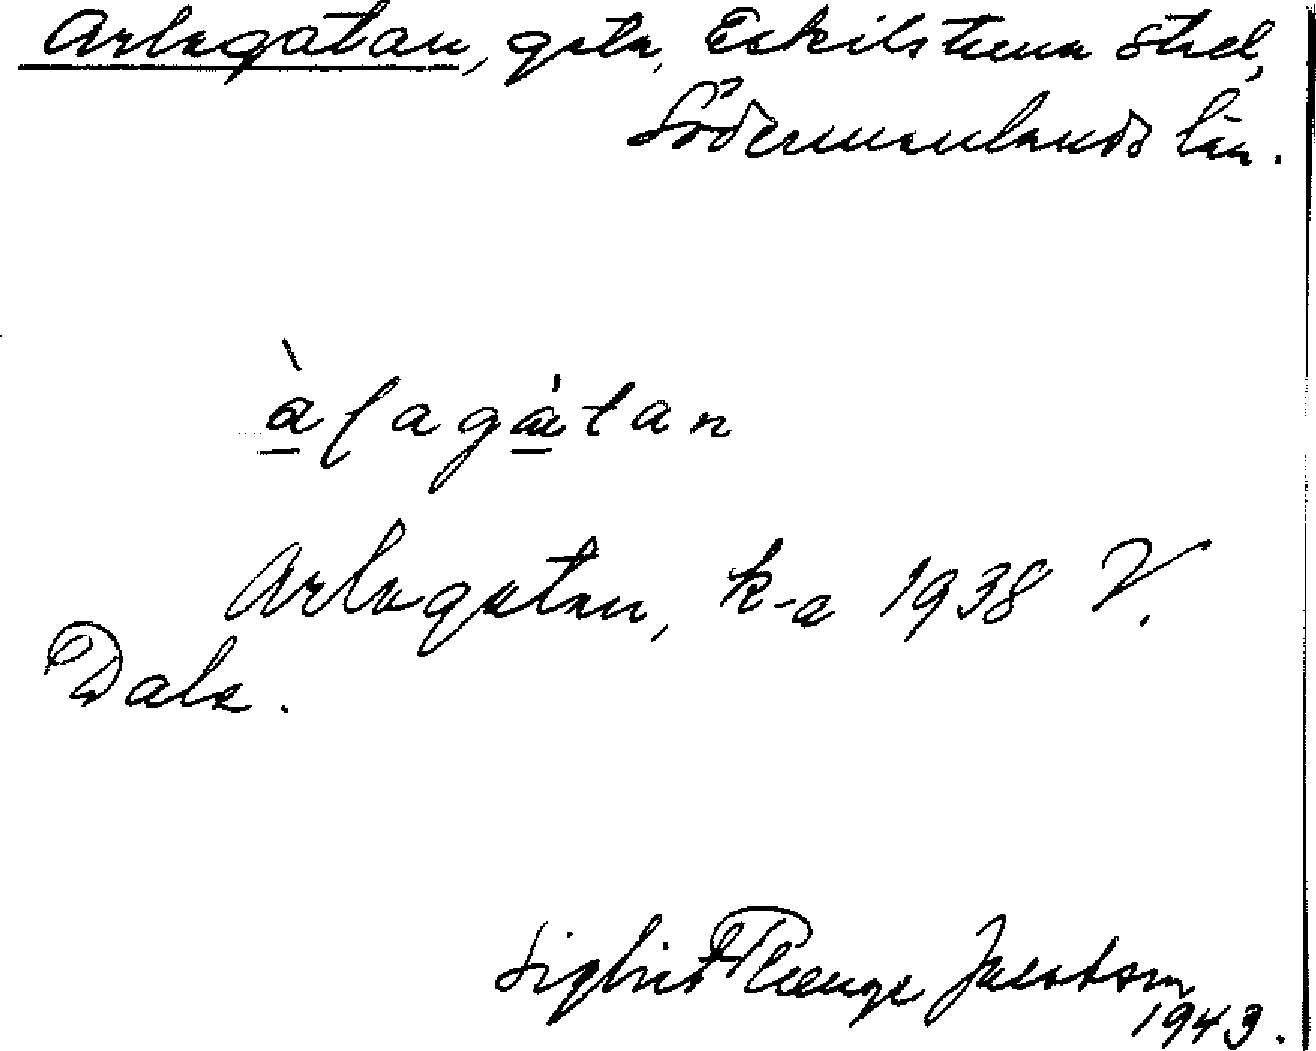 Arlagatan, gata, Eskilstuna stad,
Södermanlands län.
à̱lagá̱tan
Arlagatan, k-a 1938 V.
Dala.
Sigbrit Plænge Jacobson
1943.